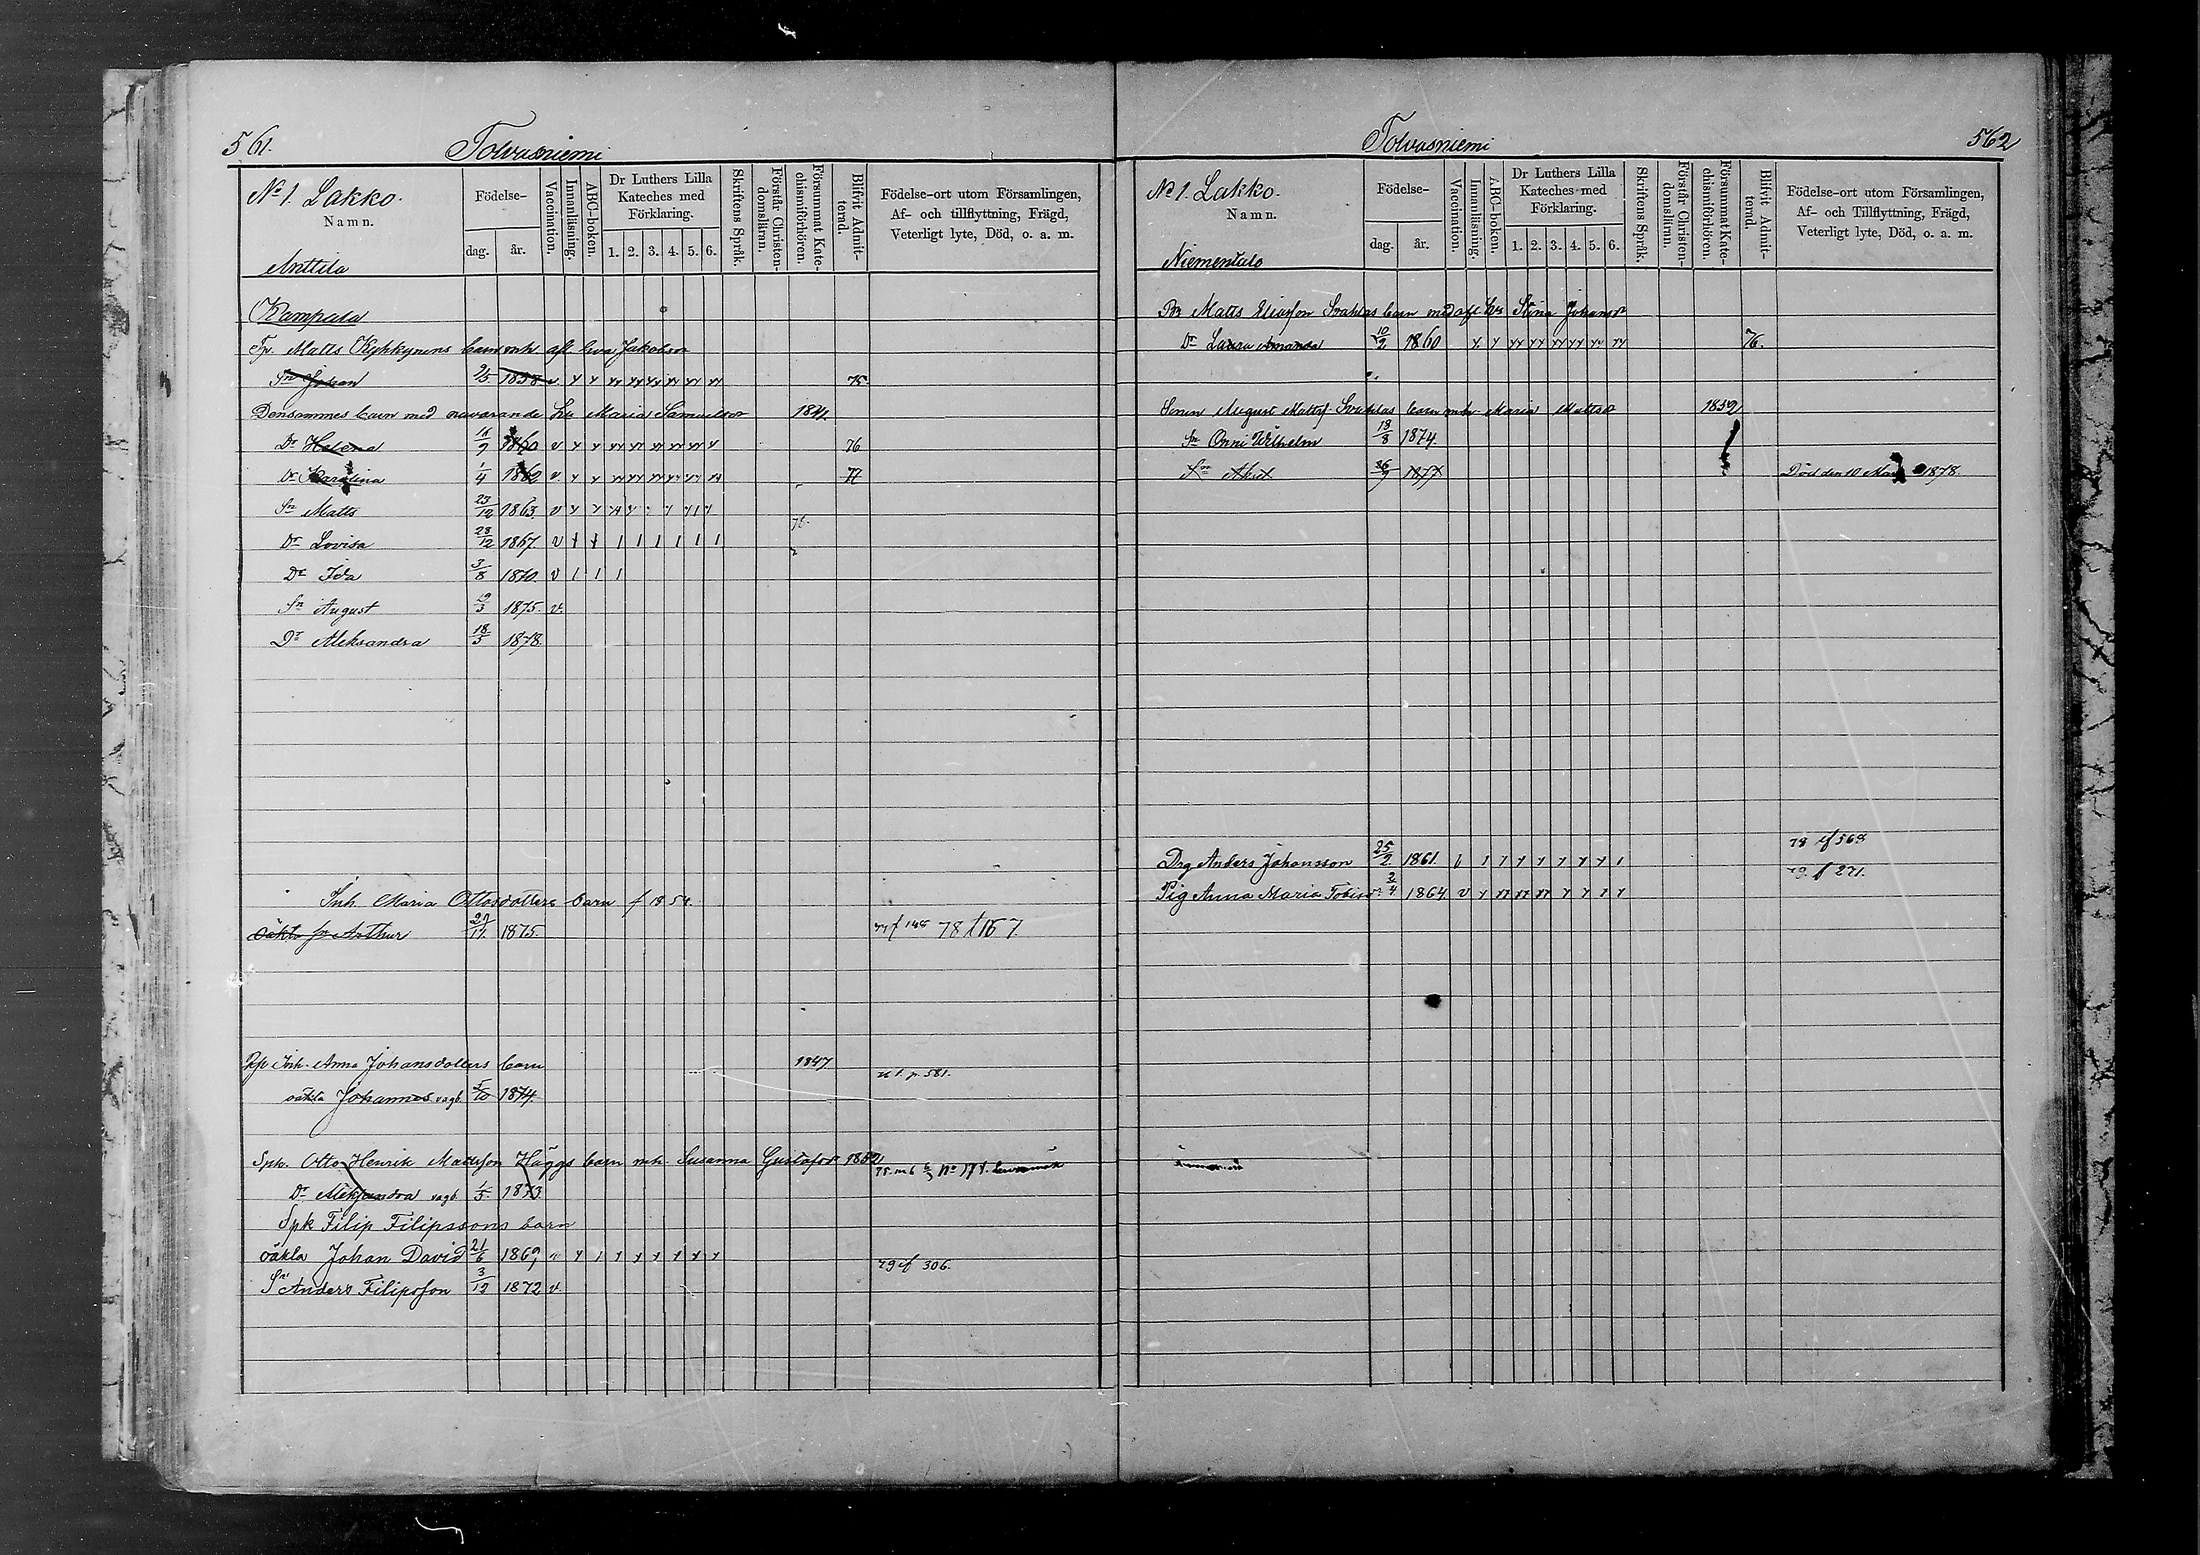 561.
Tolvasniemi
No 1. Lakko.
Namn.
Anttila
Födelse-
dag. år.
Vaccination.
Innanläsning.
ABC-boken.
Dr Luthers Lilla
Kateches med
Förklaring.
1. 2. 3. 4. 5. 6.
Skriftens Språk.
Förstår Christen-
domsläran.
Försummat Kate-
chismiförhören.
Blifvit Admit-
terad.
Födelse-ort utom Församlingen,
Af- och tillflyttning, Frägd,
Veterligt lyte, Död, o. a. m.
Kampala
Tp. Matts barn mh afl Eva Jakobsdr
Sn Johan 9/5 1858 v 75.
Densammes barn med nuvarande hu Maria Samuelsdr 1841.
Dr Helena 1860 v 76
Dr Karolina 1/4 1862 v. 77
Sn Matts 23/12 1863. v
Dr Lovisa 28/12 1867. v
Dr Ida 3/8 1870. v
Sn August 29/3 1875. v.
Dr Aleksandra 18/5 1878.
Inh. Maria Ottosdotters barn f 1854.
oäkta sn Arthur 1875. 77 f 148 78 f 157
Inh. Anna Johansdotters barn 1847
oäkta Johannes vagb. 5/10 1874. p. 581.
Spk. Otto Henrik Mattsson Häggs barn mh. Susanna Gustafsdr 1852
Dr Aleksandra vagb. 1/5 1873
Spk Filip Filipssons barn
oäkta Johan David 21/6 1869
79 f 306.
Sn Anders Filipsson 3/12 1872 v.
Tolvasniemi
562
No 1. Lakko.
Namn.
Niementalo
Födelse-
dag. år.
Vaccination.
Innanläsning.
ABC-boken.
Dr Luthers Lilla
Kateches med
Förklaring.
1. 2. 3. 4. 5. 6.
Skriftens Språk.
Förstår Christen-
domsläran.
Försummat Kate-
chismiförhören.
Blifvit Admit-
terad.
Födelse-ort utom Församlingen,
Af- och Tillflyttning, Frägd,
Veterligt lyte, Död, o. a. m.
Matts Eliasson Svahlas barn med afl hu Stina Johansdr
Dr Laura Amanda 10/2 1860 76.
August Mattss. Svahlas barn mh Maria Mattsdr 1852
Sn Onni Wilhelm 18/8 1874.
Sn Axel 26/9 1877 Död den 10 1878.
78 f 568
Drg Anders Johansson 25/2 1861.
79. f 271.
Pig Anna Maria Tobiasdr 3/4 1864. v